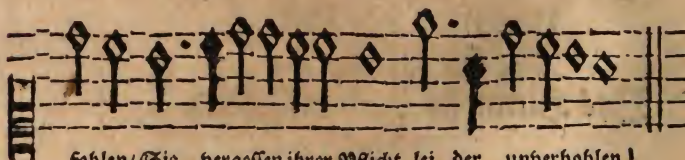 fohlen/ Sie vergassen ihrer Pflicht lei der unverhohlen!